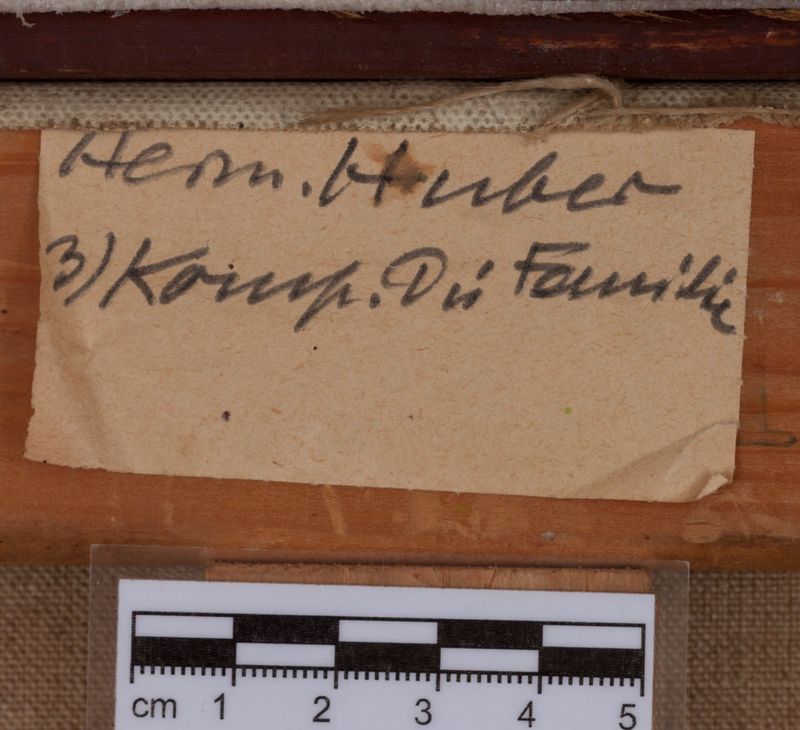 Herm. Huber
3) Komp. Die Familie
cm 1 2 3 4 5